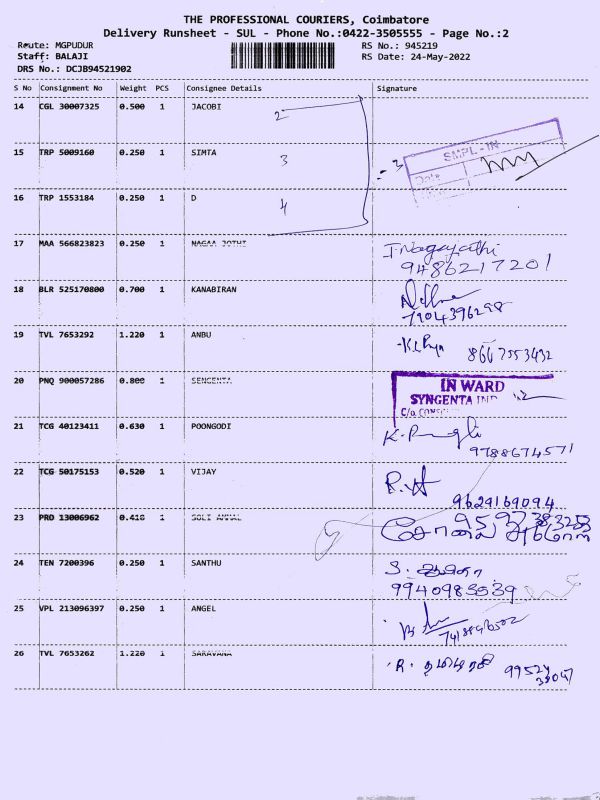 THE PROFESSIONAL COURIERS, Coimbatore
Delivery Runsheet - SUL - Phone No.:0422-3505555 - Page No.:2
Route: MGPUDUR RS No.: 945219
Staff: BALAJI RS Date: 24-May-2022
DRS No.: DCJB94521902
S No Consignment No Weight PCS Consignee Details Signature
14 CGL 30007325 0.500 1 JACOBI 2
15 TRP 5009160 0.250 1 SIMTA 3 = 3 SMPL-IN
Date
16 TRP 1553184 0.250 1 D 4
17 MAA 566823823 0.250 1 NAGAA JOTHI I. Nagajothi
9486217201
18 BLR 525170800 0.700 1 KANABIRAN
7904396298
19 TVL 7653292 1.220 1 ANBU 8667553432
20 PNQ 900057286 0.800 1 SENGENTA IN WARD
SYNGENTA IND
C/o
21 TCG 40123411 0.630 1 POONGODI K.
9788674571
22 TCG 50175153 0.520 1 VIJAY R.
9629169094
23 PRO 13006962 0.410 1 SOLI AMMAL
24 TEN 7200396 0.250 1 SANTHU S.
25 VPL 213096397 0.250 1 ANGEL
26 TVL 7653262 1.220 1 SARAVANA R.